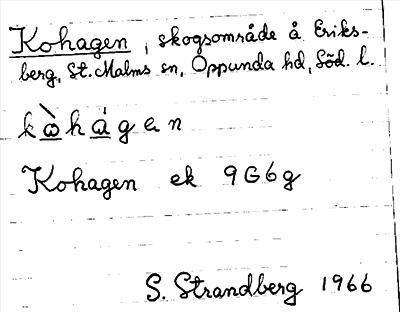 Kohagen, skogsområde å Eriks-
berg, St. Malms sn, Oppunda hd, Söd. l.
kòhágen
Kohagen ek 9G6g
S. Strandberg 1966